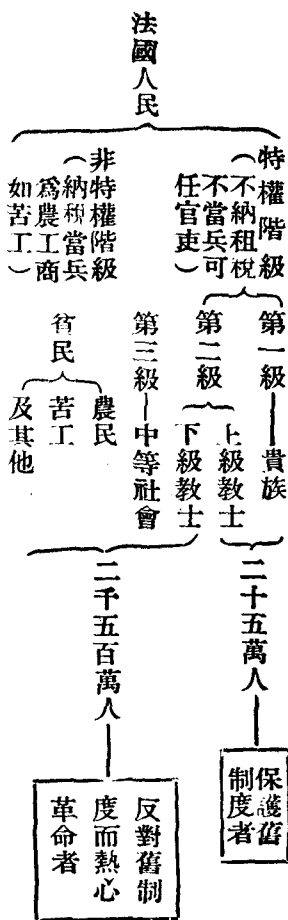 法國人民
特權階級
（不納租稅
不當兵可
任官吏）
第一級
貴族
第二級
上級教士
下級教士
二十五萬人
保護舊
制度者
非特權階級
（納稅當兵
爲農工商
如苦工）
第三級
中等社會
貧民
農民
苦工
及其他
二千五百萬人
反對舊制
度而熱心
革命者